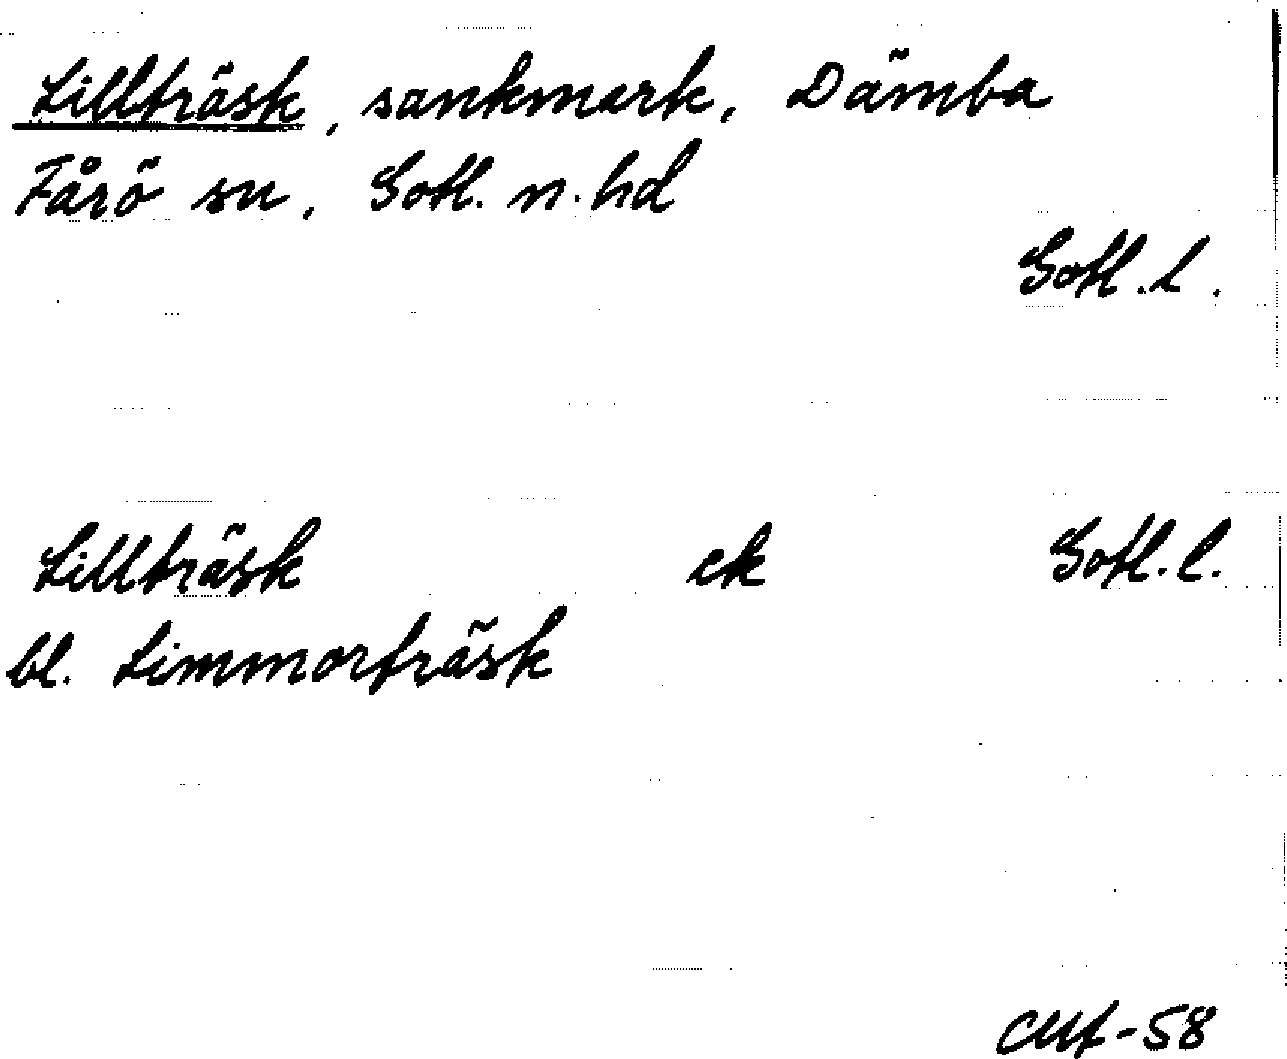 Lillträsk, sankmark, Dämba
Fårö sn, Gotl. n. hd
Gotl. l.
Lillträsk ek Gotl. l.
bl. Limmorträsk
CMf-58